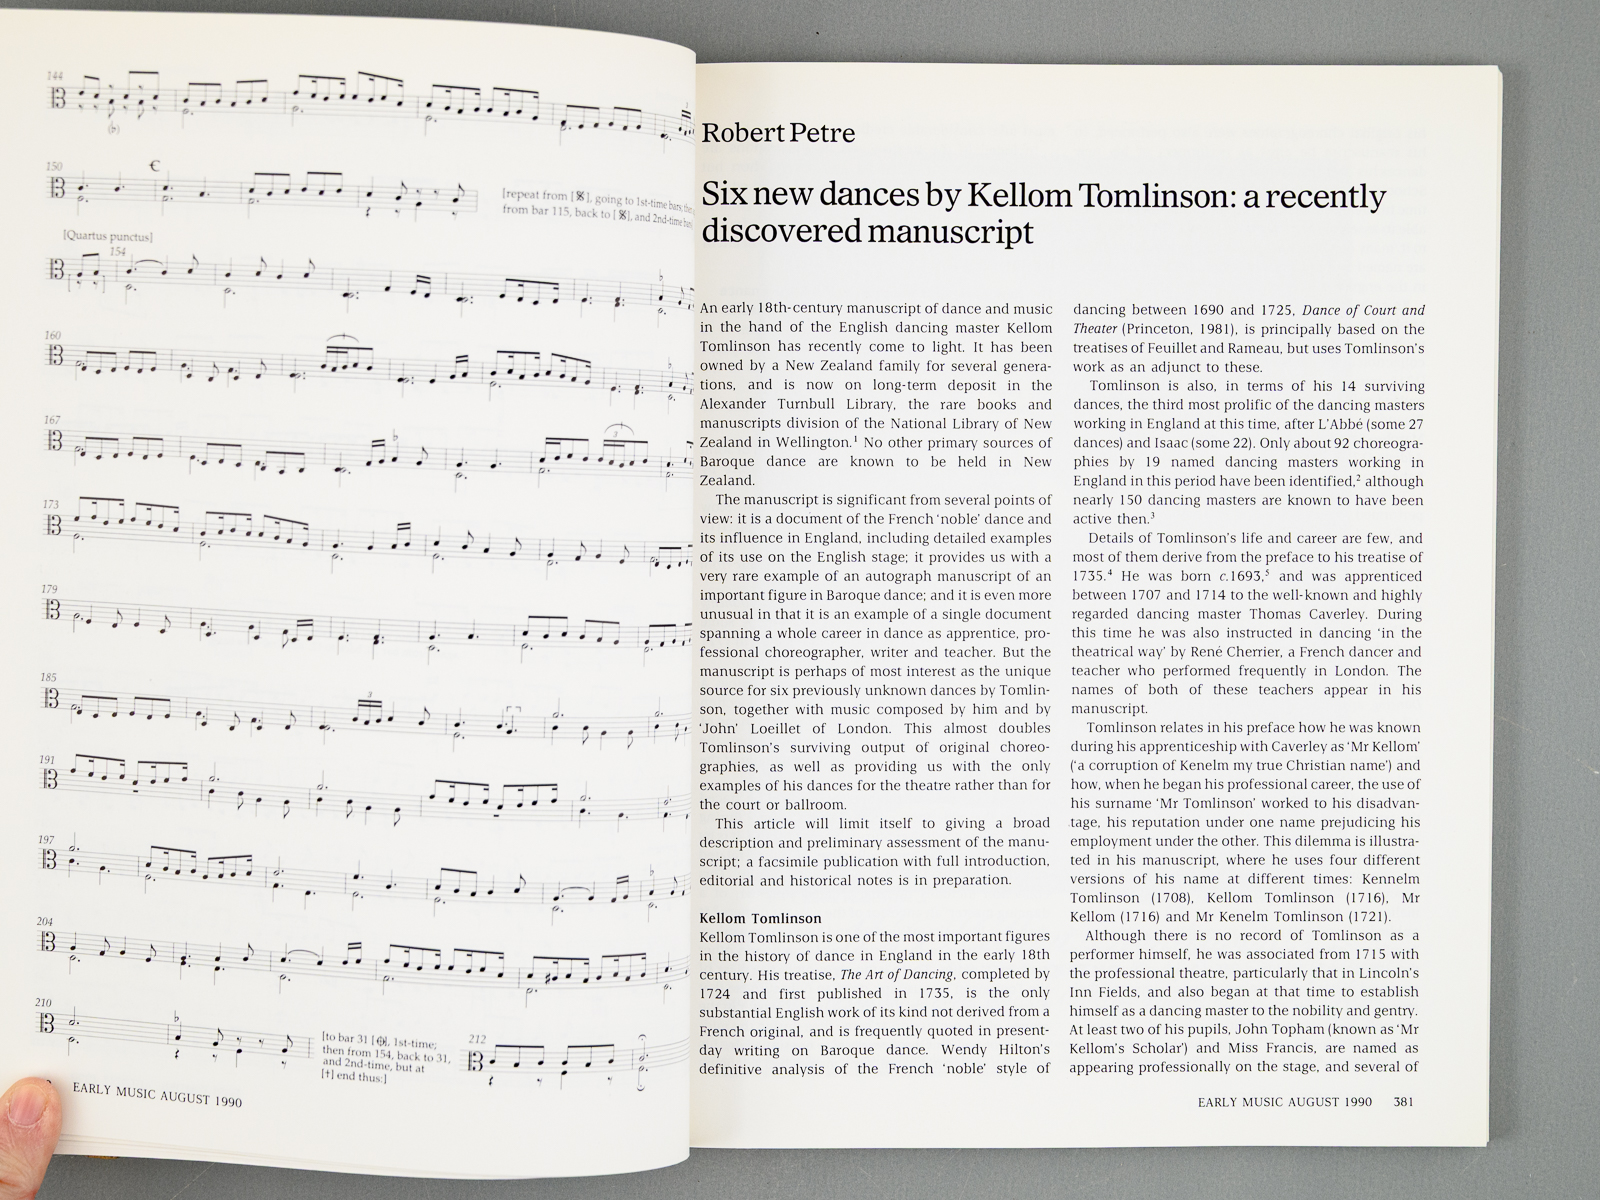 144
(b)
150
€
[repeat from [𝄋], going to 1st-time bars; then
from bar 115, back to [𝄋], and 2nd-time bars]
[Quartus punctus]
154
160
3
167
3
173
179
185
3
191
197
204
210
[to bar 31 [𝄌], 1st-time;
then from 154, back to 31,
and 2nd-time, but at
[†] end thus:]
212
EARLY MUSIC AUGUST 1990
Robert Petre
Six new dances by Kellom Tomlinson: a recently
discovered manuscript
An early 18th-century manuscript of dance and music
in the hand of the English dancing master Kellom
Tomlinson has recently come to light. It has been
owned by a New Zealand family for several genera-
tions, and is now on long-term deposit in the
Alexander Turnbull Library, the rare books and
manuscripts division of the National Library of New
Zealand in Wellington.¹ No other primary sources of
Baroque dance are known to be held in New
Zealand.
The manuscript is significant from several points of
view: it is a document of the French 'noble' dance and
its influence in England, including detailed examples
of its use on the English stage; it provides us with a
very rare example of an autograph manuscript of an
important figure in Baroque dance; and it is even more
unusual in that it is an example of a single document
spanning a whole career in dance as apprentice, pro-
fessional choreographer, writer and teacher. But the
manuscript is perhaps of most interest as the unique
source for six previously unknown dances by Tomlin-
son, together with music composed by him and by
'John' Loeillet of London. This almost doubles
Tomlinson's surviving output of original choreo-
graphies, as well as providing us with the only
examples of his dances for the theatre rather than for
the court or ballroom.
This article will limit itself to giving a broad
description and preliminary assessment of the manu-
script; a facsimile publication with full introduction,
editorial and historical notes is in preparation.
Kellom Tomlinson
Kellom Tomlinson is one of the most important figures
in the history of dance in England in the early 18th
century. His treatise, The Art of Dancing, completed by
1724 and first published in 1735, is the only
substantial English work of its kind not derived from a
French original, and is frequently quoted in present-
day writing on Baroque dance. Wendy Hilton's
definitive analysis of the French 'noble' style of
dancing between 1690 and 1725, Dance of Court and
Theater (Princeton, 1981), is principally based on the
treatises of Feuillet and Rameau, but uses Tomlinson's
work as an adjunct to these.
Tomlinson is also, in terms of his 14 surviving
dances, the third most prolific of the dancing masters
working in England at this time, after L'Abbé (some 27
dances) and Isaac (some 22). Only about 92 choreogra-
phies by 19 named dancing masters working in
England in this period have been identified,² although
nearly 150 dancing masters are known to have been
active then.³
Details of Tomlinson's life and career are few, and
most of them derive from the preface to his treatise of
1735.⁴ He was born c.1693,⁵ and was apprenticed
between 1707 and 1714 to the well-known and highly
regarded dancing master Thomas Caverley. During
this time he was also instructed in dancing 'in the
theatrical way' by René Cherrier, a French dancer and
teacher who performed frequently in London. The
names of both of these teachers appear in his
manuscript.
Tomlinson relates in his preface how he was known
during his apprenticeship with Caverley as 'Mr Kellom'
('a corruption of Kenelm my true Christian name') and
how, when he began his professional career, the use of
his surname 'Mr Tomlinson' worked to his disadvan-
tage, his reputation under one name prejudicing his
employment under the other. This dilemma is illustra-
ted in his manuscript, where he uses four different
versions of his name at different times: Kennelm
Tomlinson (1708), Kellom Tomlinson (1716), Mr
Kellom (1716) and Mr Kenelm Tomlinson (1721).
Although there is no record of Tomlinson as a
performer himself, he was associated from 1715 with
the professional theatre, particularly that in Lincoln's
Inn Fields, and also began at that time to establish
himself as a dancing master to the nobility and gentry.
At least two of his pupils, John Topham (known as 'Mr
Kellom's Scholar') and Miss Francis, are named as
appearing professionally on the stage, and several of
EARLY MUSIC AUGUST 1990 381